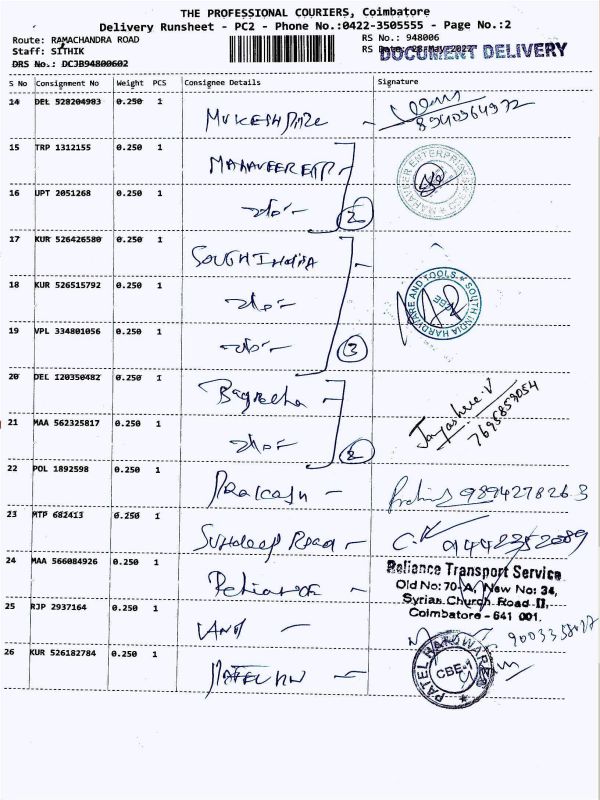 THE PROFESSIONAL COURIERS, Coimbatore
Delivery Runsheet - PC2 - Phone No.:0422-3505555 - Page No.:2
Route: RAMACHANDRA ROAD
RS No.: 948006
Staff: SITHIK
RS Date: 28-May-2022
DOCUMENT DELIVERY
DRS No.: DCJB94800602
S No Consignment No Weight PCS Consignee Details Signature
14 DEL 528204983 0.250 1
8940364972
15 TRP 1312155 0.250 1 MAHAVEER ETP
MAHAVEER ENTERPRISES
16 UPT 2051268 0.250 1 -do- 2
17 KUR 526426580 0.250 1 SOUGH INDIA
18 KUR 526515792 0.250 1 -do-
SOUTH INDIA HARDWARE AND TOOLS CBE
19 VPL 334801056 0.250 1 -do- 3
20 DEL 120350482 0.250 1
Jayashree V
7695859054
21 MAA 562325817 0.250 1 -do- 2
22 POL 1892598 0.250 1 Prakash 9894278263
23 MTP 682413 0.250 1 Road C.K 94442352089
24 MAA 566084926 0.250 1
Reliance Transport Service
Old No: 70-A, New No: 34,
Syrian Church Road II,
Coimbatore - 641 001.
25 RJP 2937164 0.250 1 VANI
26 KUR 526182784 0.250 1 PATEL HW
PATEL HARDWARES CBE-1